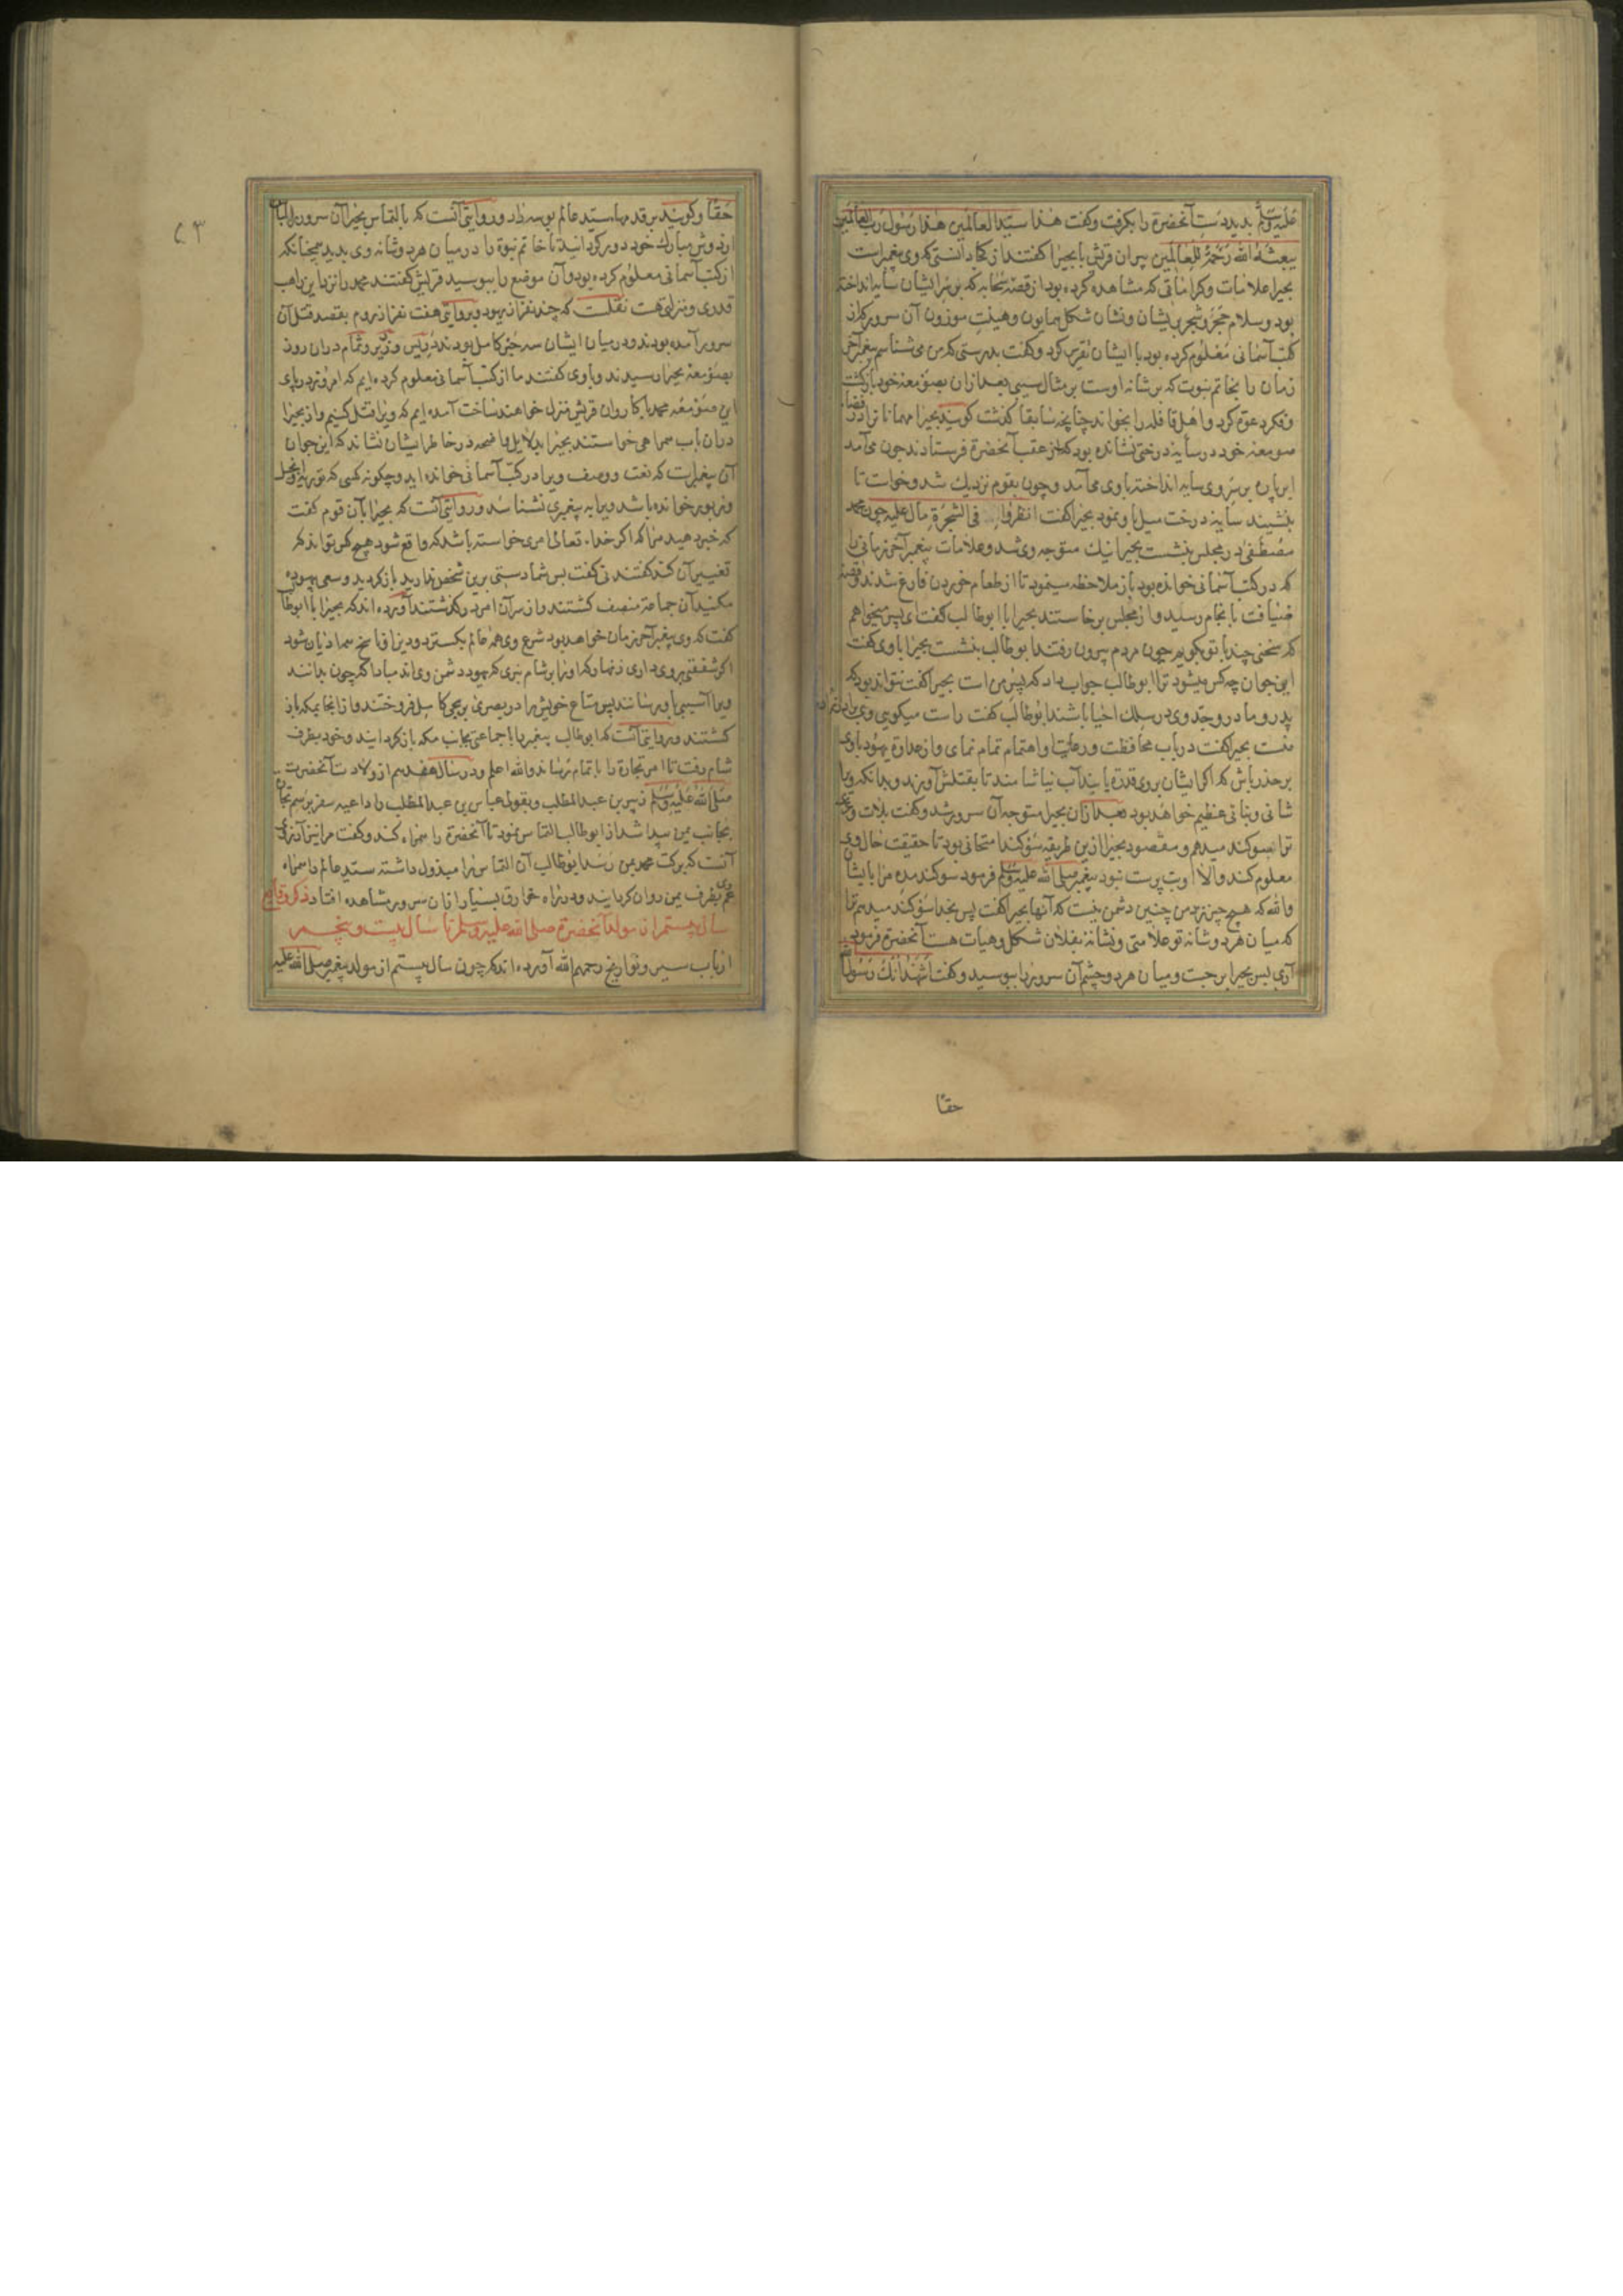 علیه وسلم بدید دست آنحضرة را بکرفت وکفت هذا سید العالمین هذا رسول رب العالمین
یبعثه الله رحمة للعالمین پیران قریش با بحیرا کفتند از کجا دانستی که وی پیغمبراست
بحیرا علامات وکراماتی که مشاهده کرده بود از قصه سحابه که بر سر ایشان سایه انداخته
بود وسلام حجر وشجر بر ایشان ونشان شکل همایون وهیئت موزون آن سرور که از
کتب آسمانی معلوم کرده بود با ایشان تقریر کرد وکفت بدرستی که من می شناسم پیغمبر آخر
زمان را بخاتم نبوت که بر شانه اوست بر مثال سیبی بعد ازان بصومعه خود بازکشت
وفکر دعوة کرد و اهل قافله را بخواند چنانچه سابقا کذشت کویند بحیرا مهمانانرا در فضاء
صومعه خود در سایه درختی نشانده بود که از عقب آنحضرة فرستادند چون می آمد
ابر پاره بر سر وی سایه انداخته با وی می آمد وچون بقوم نزدیک شد وخواست تا
بنشیند سایه درخت میل باو نمود بحیرا کفت انظروا فی الشجرة مال علیه چون محمد
مصطفی در مجلس بنشست بحیرا نیک متوجه وی شد وعلامات پیغمبر آخر زمانی را
که در کتب آسمانی خوانده بود باز ملاحظه مینمود تا از طعام خوردن فارغ شدند وقصه
ضیافت بانجام رسید و از مجلس برخاستند بحیرا با ابوطالب کفت ای پسر میخواهم
که سخنی چند با تو بکویم چون مردم بیرون رفتند ابوطالب بنشست بحیرا باوی کفت
این جوان چه کس میشود ترا ابوطالب جواب داد که پسر من است بحیرا کفت نتواند بود که
پدر و مادر وجد وی در سلک احیا باشند ابوطالب کفت راست میکویی وی برادرزاده
منست بحیرا کفت در باب محافظت ورعایت او اهتمام تمام نمای و از عداوة یهود با وی
بر حذر باش که اکر ایشان بر وی قدرة یابند آب نیاشامند تا بقتلش آورند وبدانکه ویرا
شانی وبنانی عظیم خواهد بود بعد ازان بحیرا متوجه آن سرور شد وکفت بلات وعزی
ترا سوکند میدهم ومقصود بحیرا ازین طریقه سوکند امتحانی بود تا حقیقت حال وی
معلوم کند والا او بت پرست نبود پیغمبر صلی الله علیه وسلم فرمود سوکند مده مرا بایشان
والله که هیچ چیز نزد من چنین دشمن نیست که آنها بحیرا کفت پس بخدا سوکند میدهم ترا
که میان هر دو شانه تو علامتی ونشانه بفلان شکل وهیات هست آنحضرة فرمود
آری پس بحیرا برجست ومیان هر دو چشم آن سرور را ببوسید وکفت اشهد انک رسول الله
حقا
٢٣
حقا وکویند بر قدمهاء سید عالم بوسه داد ودر روایتی آنست که بالتماس بحیرا آن سرور لباس
از دوش مبارک خود دور کردانید تا خاتم نبوة را در میان هر دو شانه وی بدید همچنانکه
از کتب آسمانی معلوم کرده بود و آن موضع را ببوسید قریش کفتند محمد را نزد این راهب
قدری ومنزلی هست نقلست که چند نفر از یهود وبروایتی هفت نفر از روم بقصد قتل آن
سرور آمده بودند ودر میان ایشان سه حبر کامل بودند دریس وزریر وتمام دران روز
بصومعه بحیرا رسیدند وباوی کفتند ما از کتب آسمانی معلوم کرده ایم که امروز در پای
این صومعه محمد با کاروان قریش منزل خواهند ساخت آمده ایم که ویرا قتل کنیم و از بحیرا
دران باب همراهی خواستند بحیرا بدلایل واضحه در خاطر ایشان نشاند که این جوان
آن پیغمبرست که نعت ووصف ویرا در کتب آسمانی خوانده اید وچکونه کسی که توریه وانجیل
وزبور خوانده باشد ویرا به پیغمبری نشناسد ودر روایتی آنست که بحیرا با آن قوم کفت
که خبر دهید مرا که اکر خداء تعالی امری خواسته باشد که واقع شود هیچ کس تواند که
تغییر آن کند کفتند نی کفت پس شما دستی برین شخص ندارید باز کردید وسعی بیهوده
مکنید آن جماعة منصف کشتند و از سر آن امر در کذشتند آورده اند که بحیرا با ابوطالب
کفت که وی پیغمبر آخر زمان خواهد بود شرع وی همه عالم بکسترد ودین او ناسخ همه ادیان شود
اکر شفقتی بر وی داری زنهار که او را بر شام نبری که یهود دشمن وی اند مبادا که چون بدانند
ویرا آسیبی باو رسانند پس متاع خویش را در بصری بر بحی کامل فروختند و از انجا بمکه باز
کشتند ودر روایتی آنست که ابوطالب پیغمبر را با جماعتی بجانب مکه باز کردانید وخود بطرف
شام رفت تا امر تجارة را باتمام رساند والله اعلم ودر سال هفدهم از ولادت آنحضرت
صلی الله علیه وسلم زبیر بن عبدالمطلب وبقولی عباس بن عبدالمطلب را داعیه سفر برسم تجارة
بجانب یمن پیدا شد از ابوطالب التماس نمود تا آنحضرة را همراه کند وکفت مرا نیز آرزوی
آنست که برکت محمد بمن رسد ابوطالب آن التماس را مبذول داشته سید عالم را همراه
عم وی بطرف یمن روان کردانید ودر راه خوارق بسیار از ان سرور مشاهده افتاد ذکر وقایع
سال بیستم از مولد آنحضرة صلی الله علیه وسلم تا سال بیست وپنجم
ارباب سیر وتواریخ رحمهم الله آورده اند که چون سال بیستم از مولد پیغمبر صلی الله علیه